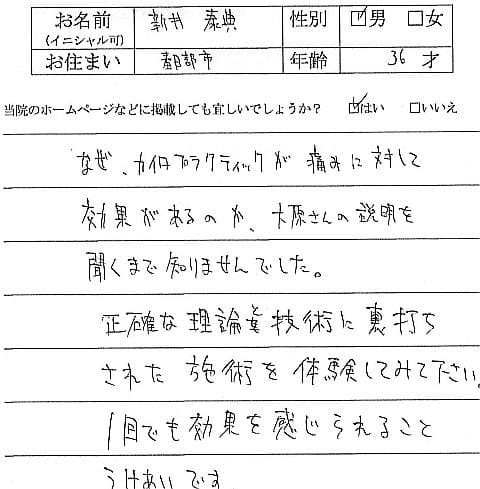 お名前 新井 泰典 性別 ☑男 □女
(イニシャル可)
お住まい 都留市 年齢 36 才
当院のホームページなどに掲載しても宜しいでしょうか？ ☑はい □いいえ
なぜ、カイロプラクティックが痛みに対して
効果があるのか、大原さんの説明を
聞くまで知りませんでした。
正確な理論と技術に裏打ち
された施術を体験してみて下さい。
1回でも効果を感じられること
うけあいです。